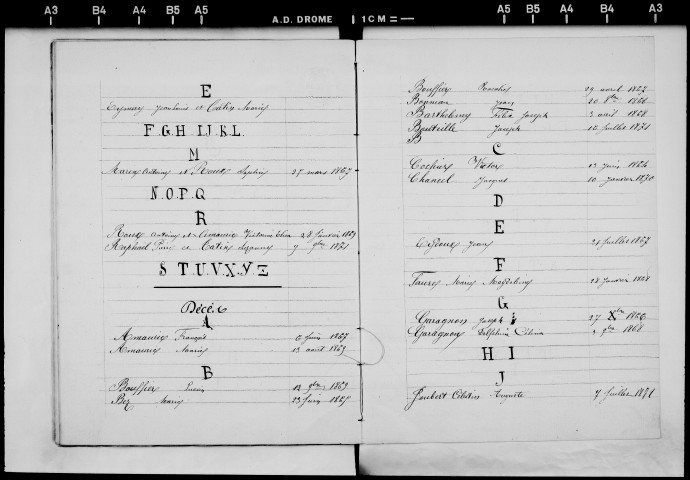 A3 B4 A4 B5 A5 A.D. DROME 1CM A5 B5 A4 B4 A3
E
Eymary Jean louis et Catin Marie
F. G. H. I. J. K. L.
M
Marin Antoine et Roux Sophie 27 mars 1867
N. O. P. Q
R
Roux Antoine et Amauric Victorine Elisa 28 Janvier 1869
Raphael Pain et Catin Suzanne 9 9bre 1871
S T. U. V. X. Y Z
Décès
A
Amauric François 6 Juin 1867
Amauric Marie 13 août 1869
B
Bouffier Lucien 13 9bre 1869
Bez Marie 23 Juin 1867
Bouffier Rosalie 29 avril 1867
Bonman Jean 20 8bre 1868
Barthélemy Félix Joseph 3 avril 1868
Bouteille Joseph 16 Juillet 1871
B
C
Cochier Victor 13 Juin 1864
Chancel Jacques 10 janvier 1870
D
E
Jean 21 Juillet 1867
F
Faure Marie Magdeleine 28 Janvier 1868
G
Garagnon Joseph 27 Xbre 1866
Garagnon Delphine Célina 9bre 1868
H I
J
Joubert Célestin Auguste 7 Juillet 1871